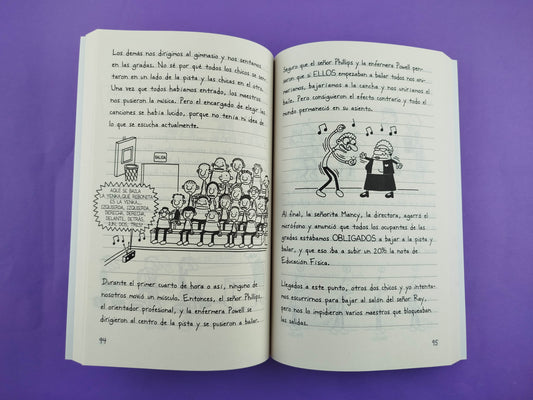 Los demás nos dirigimos al gimnasio y nos sentamos
en las gradas. No sé por qué todos los chicos se sen-
taron en un lado de la pista y las chicas en el otro.
Una vez que todos habíamos entrado, los maestros
nos pusieron la música. Pero el encargado de elegir las
canciones se había lucido, porque no tenía ni idea de
lo que se escucha actualmente.
SALIDA
AQUÍ SE BAILA
LA YENKA, QUÉ REBONITA
ES LA YENKA...
IZQUIERDA, IZQUIERDA,
DERECHA, DERECHA,
DELANTE, DETRÁS,
¡UN, DOS, TRES!
Durante el primer cuarto de hora o así, ninguno de
nosotros movió un músculo. Entonces, el señor Phillips,
el orientador profesional, y la enfermera Powell se
dirigieron al centro de la pista y se pusieron a bailar.
94
Seguro que el señor Phillips y la enfermera Powell pen-
saron que si ELLOS empezaban a bailar todos nos ani-
maríamos, bajaríamos a la cancha y nos uniríamos al
baile. Pero consiguieron el efecto contrario y todo el
mundo permaneció en su asiento.
Al final, la señorita Mancy, la directora, agarró el
micrófono y anunció que todos los ocupantes de las
gradas estábamos OBLIGADOS a bajar a la pista y
bailar, y que eso iba a subir un 20% la nota de
Educación Física.
Llegados a este punto, otros dos chicos y yo intenta-
mos escurrirnos para bajar al salón del señor Ray,
pero nos lo impidieron varios maestros que bloqueaban
las salidas.
95